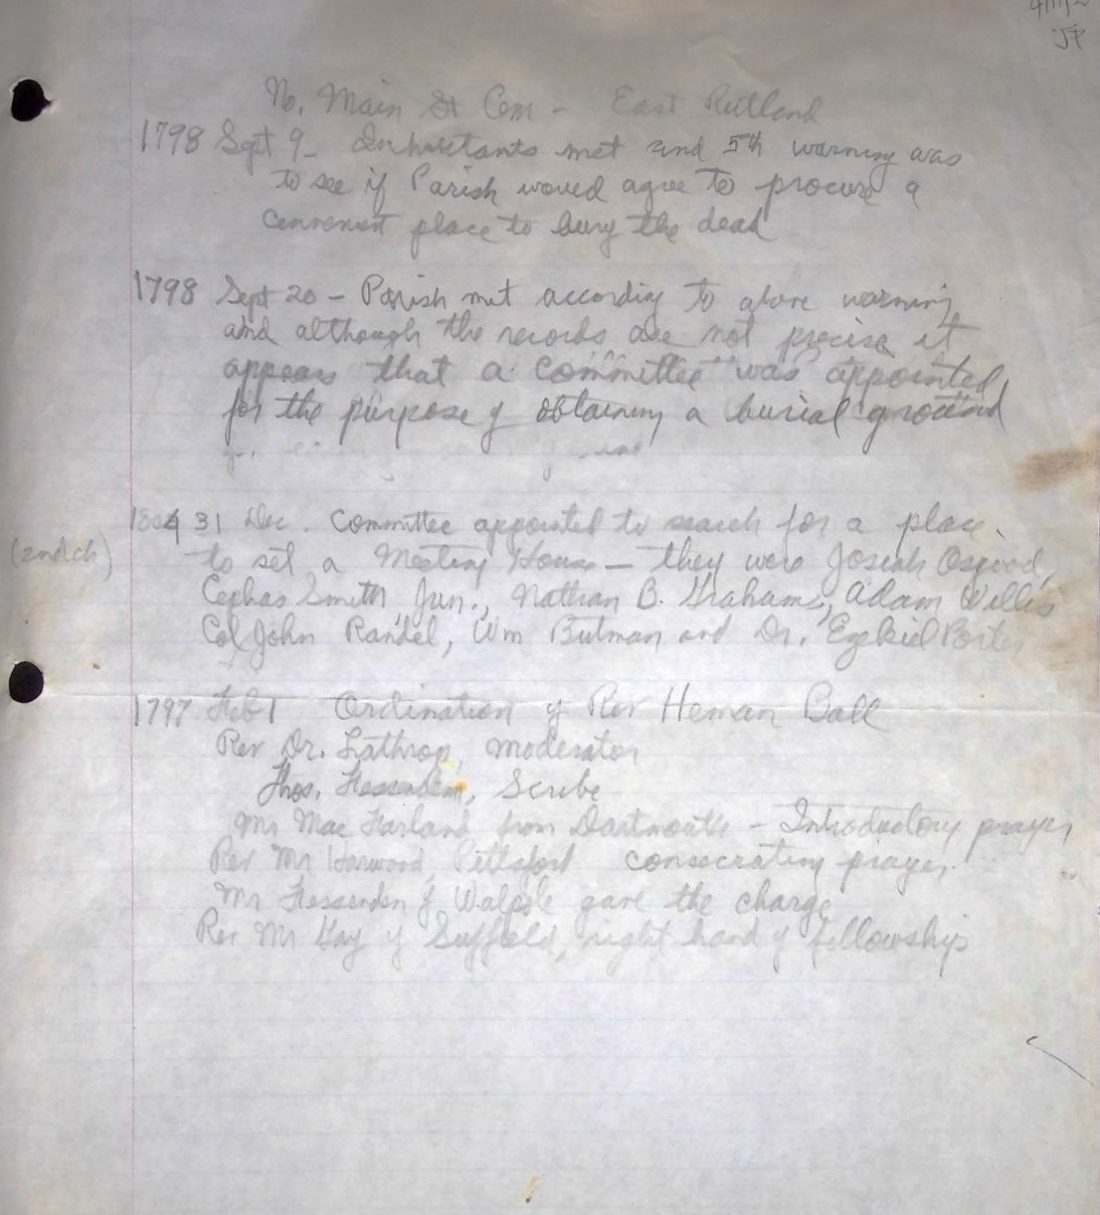 JP
No. Main St Cem - East Rutland
1798 Sept 9 - Inhabitants met and 5th warning was
to see if Parish would agree to procure a
convenient place to bury the dead
1798 Sept 20 - Parish met according to above warning
and although the records are not precise it
appears that a committee was appointed
for the purpose of obtaining a burial ground
1804 31 Dec. Committee appointed to search for a place
(2nd ch) to set a Meeting House - they were Josiah Osgood,
Cephas Smith Jun., Nathan B. Graham, Adam Willis
Col John Randel, Wm Butman and Dr. Ezekiel Porter
1797 Feb 1 Ordination of Rev Heman Ball
Rev Dr. Lathrop, moderator
Thos. Fessenden, Scribe
Mr Mac Farland from Dartmouth - Introductory prayer
Rev Mr Harwood, Pittsford consecrating prayer.
Mr Fessenden of Walpole gave the charge
Rev Mr Gay of Suffield, right hand of fellowship